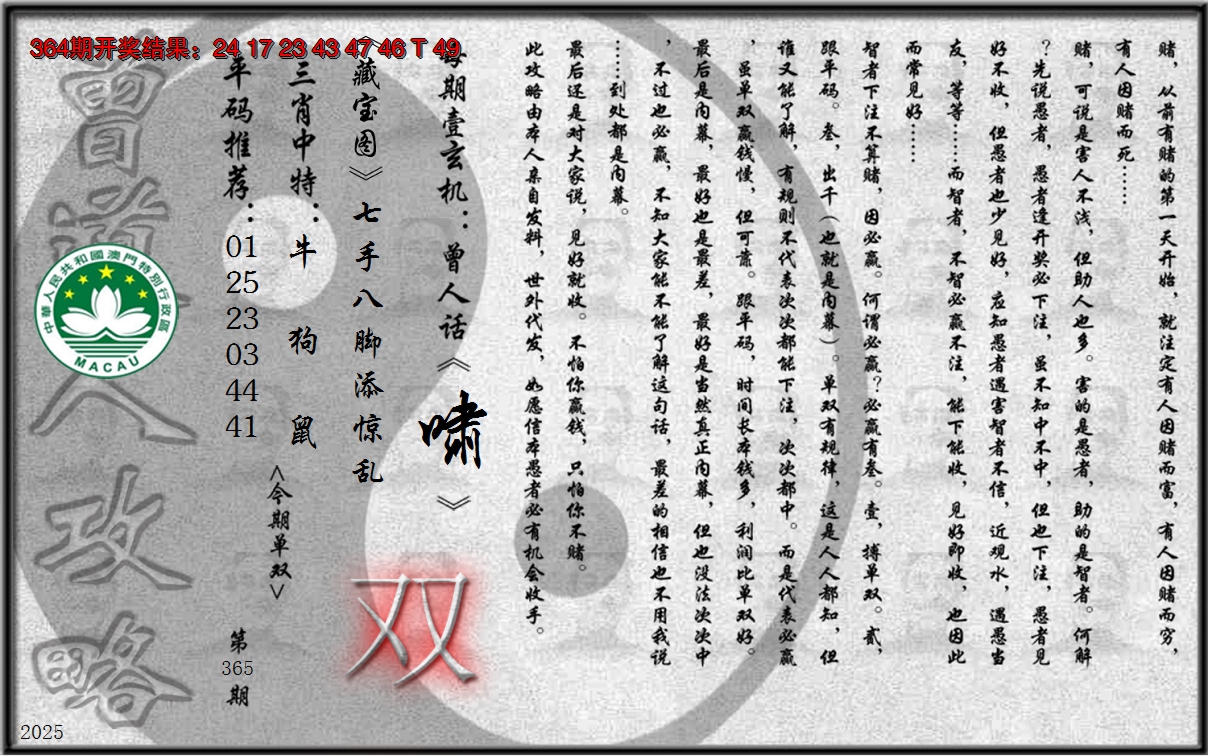 364期开奖结果：24 17 23 43 47 46 T 49
赌，从前有赌的第一天开始，就注定有人因赌而富，有人因赌而穷，
有人因赌而死……
赌，可说是害人不浅，但助人也多。害的是愚者，助的是智者。何解
？先说愚者，愚者逢开奖必下注，虽不知中不中，但也下注，愚者见
好不收，但愚者也少见好，应知愚者遇害智者不信，近观水，遇愚当
友，等等……而智者，不智必赢不注，能下能收，见好即收，也因此
而常见好……
智者下注不算赌，因必赢。何谓必赢？必赢有叁。壹，搏单双。贰，
跟平码。叁，出千（也就是内幕）。单双有规律，这是人人都知，但
谁又能了解，有规则不代表次次都能下注，次次都中。而是代表必赢
，虽单双赢钱慢，但可靠。跟平码，时间长本钱多，利润比单双好。
最后是内幕，最好也是最差，最好是当然真正内幕，但也没法次次中
，不过也必赢，不知大家能不能了解这句话，最差的相信也不用我说
……到处都是内幕。
最后还是对大家说，见好就收。不怕你赢钱，只怕你不赌。
此攻略由本人亲自发料，世外代发，如愿信本愚者必有机会收手。
每期壹玄机：曾人话《啸》
《藏宝图》七手八脚添惊乱
三肖中特：牛 狗 鼠
<今期单双>
双
平码推荐：01 25 23 03 44 41
第365期
曾道人攻略
中華人民共和國澳門特別行政區
MACAU
2025